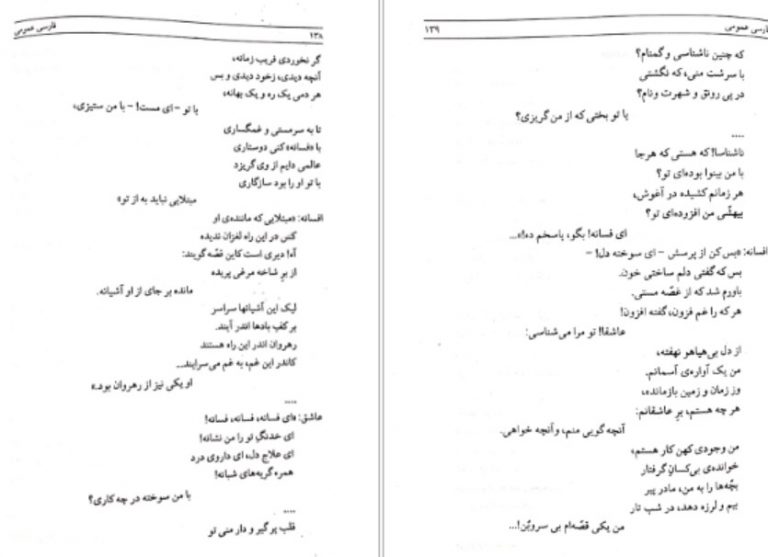 فارسی عمومی
۱۳۸
گر نخوردی فریب زمانه،
آنچه دیدی، زخود دیدی و بس
هر دمی یک ره و یک بهانه،
با تو - ای مست! - با من ستیزی،
تا به سرمستی و غمگساری
با «فسانه» کنی دوستاری
عالمی دایم از وی گریزد
با تو او را بود سازگاری
مبتلایی نیابد به از تو»
افسانه: «مبتلایی که ماننده‌ی او
کس در این راه لغزان ندیده
آه! دیری است کاین قصّه گویند:
از بر شاخه مرغی پریده
مانده بر جای از او آشیانه.
لیک این آشیانها سراسر
بر کف بادها اندر آیند.
رهروان اندر این راه هستند
کاندر این غم، به غم می‌سرایند...
او یکی نیز از رهروان بود.»
....
عاشق: «ای فسانه، فسانه، فسانه!
ای خدنگ تو را من نشانه!
ای علاج دل، ای داروی درد
همره گریه‌های شبانه!
با من سوخته در چه کاری؟
....
قلب پر گیر و دار منی تو
فارسی عمومی
۱۳۹
که چنین ناشناسی و گمنام؟
یا سرشت منی، که نگشتی
در پی رونق و شهرت ونام؟
یا تو بختی که از من گریزی؟
....
ناشناسا! که هستی که هرجا
با من بینوا بوده‌ای تو؟
هر زمانم کشیده در آغوش،
بیهشّی من افزوده‌ای تو؟
ای فسانه! بگو، پاسخم ده!»...
افسانه: «بس کن از پرسش - ای سوخته دل! -
بس که گفتی دلم ساختی خون.
باورم شد که از غصّه مستی.
هر که را غم فزون، گفته افزون!
عاشقا! تو مرا می‌شناسی:
از دل بی‌هیاهو نهفته،
من یک آواره‌ی آسمانم.
وز زمان و زمین بازمانده،
هر چه هستم، بر عاشقانم:
آنچه گویی منم، وآنچه خواهی.
من وجودی کهن کار هستم،
خوانده‌ی بی‌کسان گرفتار
بچّه‌ها را به من، مادر پیر
بیم و لرزه دهد، در شب تار
من یکی قصّه‌ام بی سروبُن!...